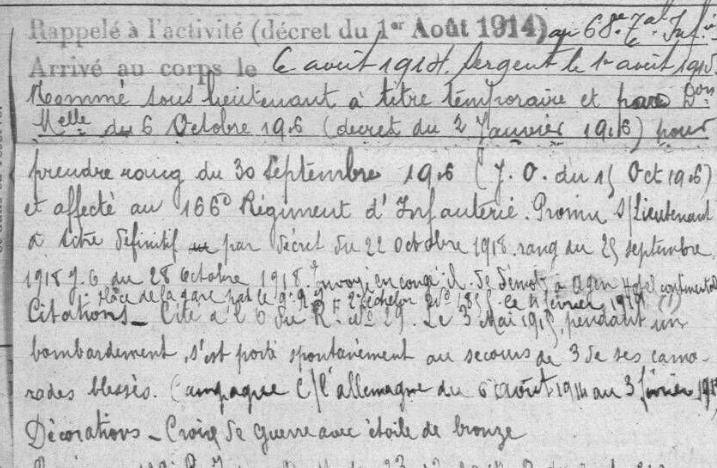 Rappelé à l'activité (décret du 1er Août 1914) au 68e R al Inf ie
Arrivé au corps le 6 août 1914. Sergent le 1er août 1915
Nommé sous lieutenant à titre temporaire et par Don
Melle du 6 Octobre 1916 (décret du 2 Janvier 1916) pour
prendre rang du 30 Septembre 1916 (J. O. du 15 Oct 1916)
et affecté au 166e Régiment d'Infanterie. Promu S/Lieutenant
à titre définitif par décret du 22 octobre 1918. rang du 25 septembre
1918 J.O du 28 Octobre 1918. Envoyé en congé il. de démob à Agen Hotel continental
place de la gare par le 2e échelon le 4 février 1919 (1)
Citations _ Cité à l'O du R. No 29. Le 3 Mai 1915, pendant un
bombardement, s'est porté spontanément au secours de 3 de ses cama-
rades blessés. Campagne C/ l'allemagne du 6 août 1914 au 3 février 191
Décorations _ Croix de guerre avec étoile de bronze